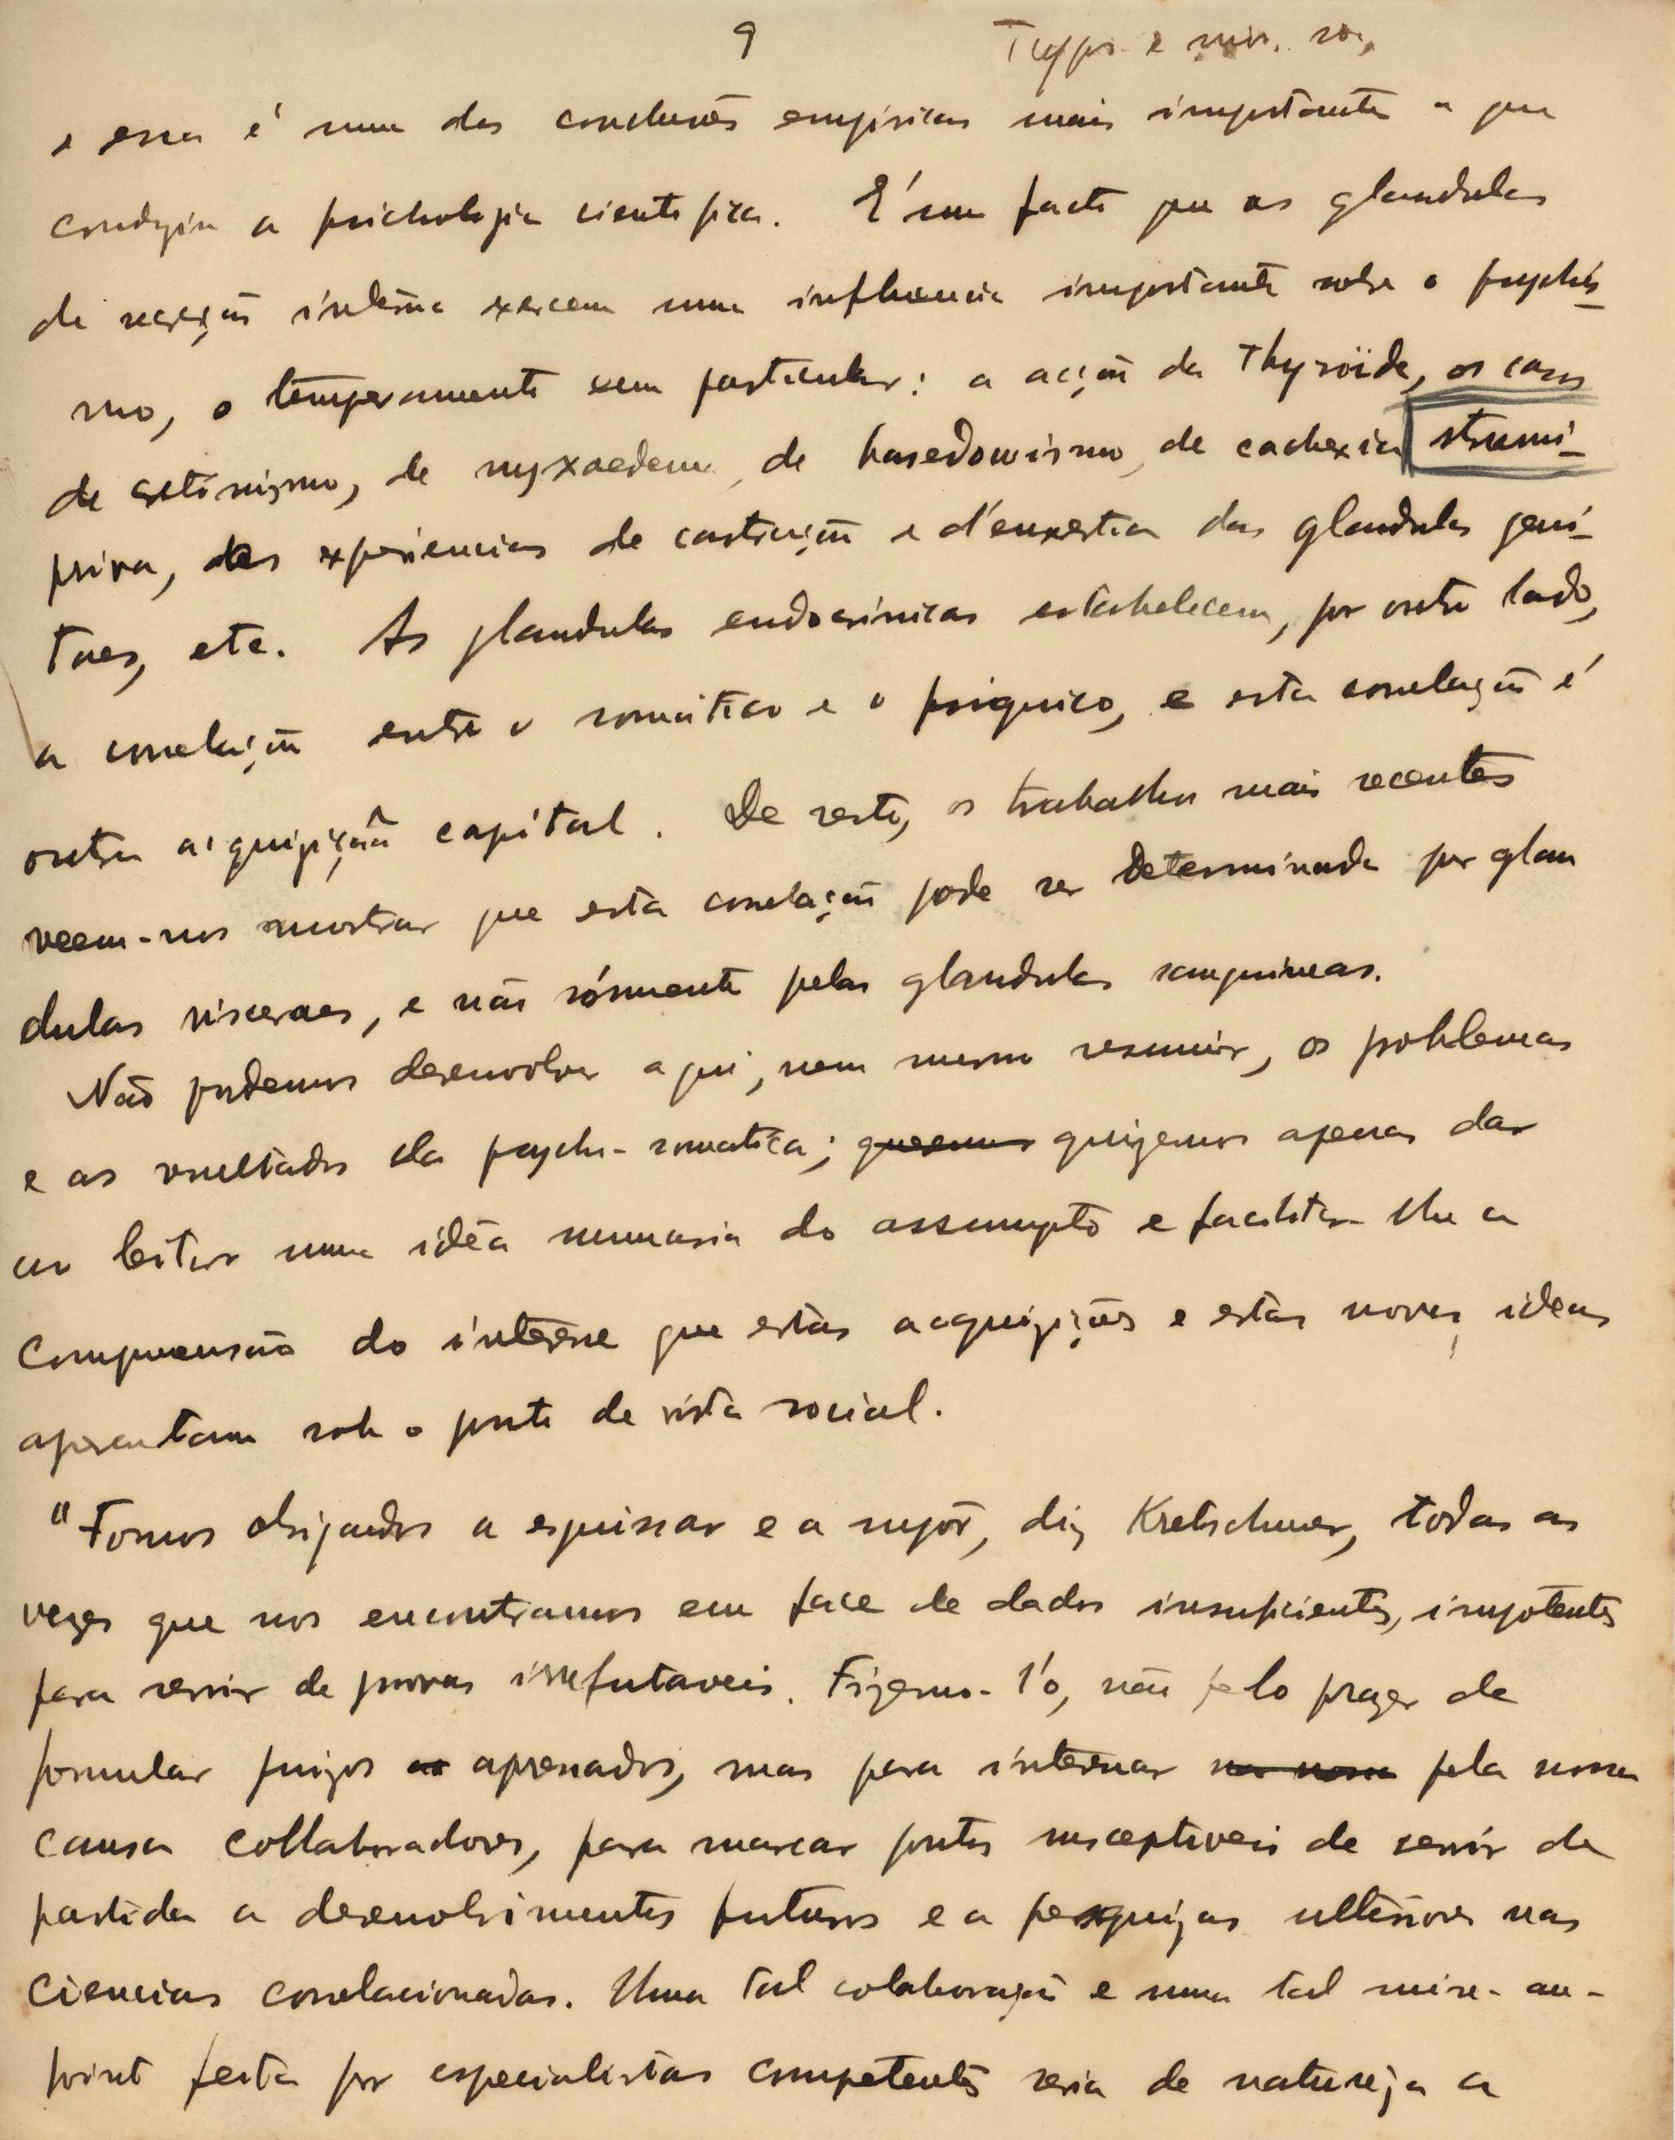 9
e essa é uma das conclusões empiricas mais importantes a que
conduziu a psichologia scientifica. É um facto que as glandulas
de secreção interna exercem uma influencia importante sobre o psychis-
mo, o temperamento em particular: a acção da Thyroïde, os casos
de cretinismo, de myxoedema, de basedowismo, de cachexia strumi-
priva, das experiencias de castração e d'enxertia das glandulas geni-
taes, etc. As glandulas endocrinicas estabelecem, por outro lado,
a correlação entre o somatico e o psiquico, e esta correlação é
outra acquizição capital. De resto, os trabalhos mais recentes
veem-nos mostrar que esta correlação pode ser determinada por glan
dulas visceraes, e não sómente pelas glandulas sanguineas.
Não podemos desenvolver aqui, nem mesmo resumir, os problemas
e as resultados da psycho-somatica; queremos quizemos apenas dar
ao leitor uma idéa summaria do assumpto e facilitar-lhe a
comprehensão do interesse que estas acquizições e estas novas ideas
apresentam sob o ponto de vista social.
"Fomos obrigados a esquissar e a supôr, diz Kretschmer, todas as
vezes que nos encontramos em face de dados insuficientes, impotentes
para servir de provas irrefutaveis. Fizemo-l'o, não pelo prazer de
formular juizos apressados, mas para interessar pela nossa
causa collaboradores, para marcar pontos susceptiveis de servir de
partida a desenvolvimentos futuros e a pesquizas ulteriores nas
ciencias correlacionadas. Uma tal colaboração e uma tal mise-au-
point feita por especialistas competentes seria de natureza a